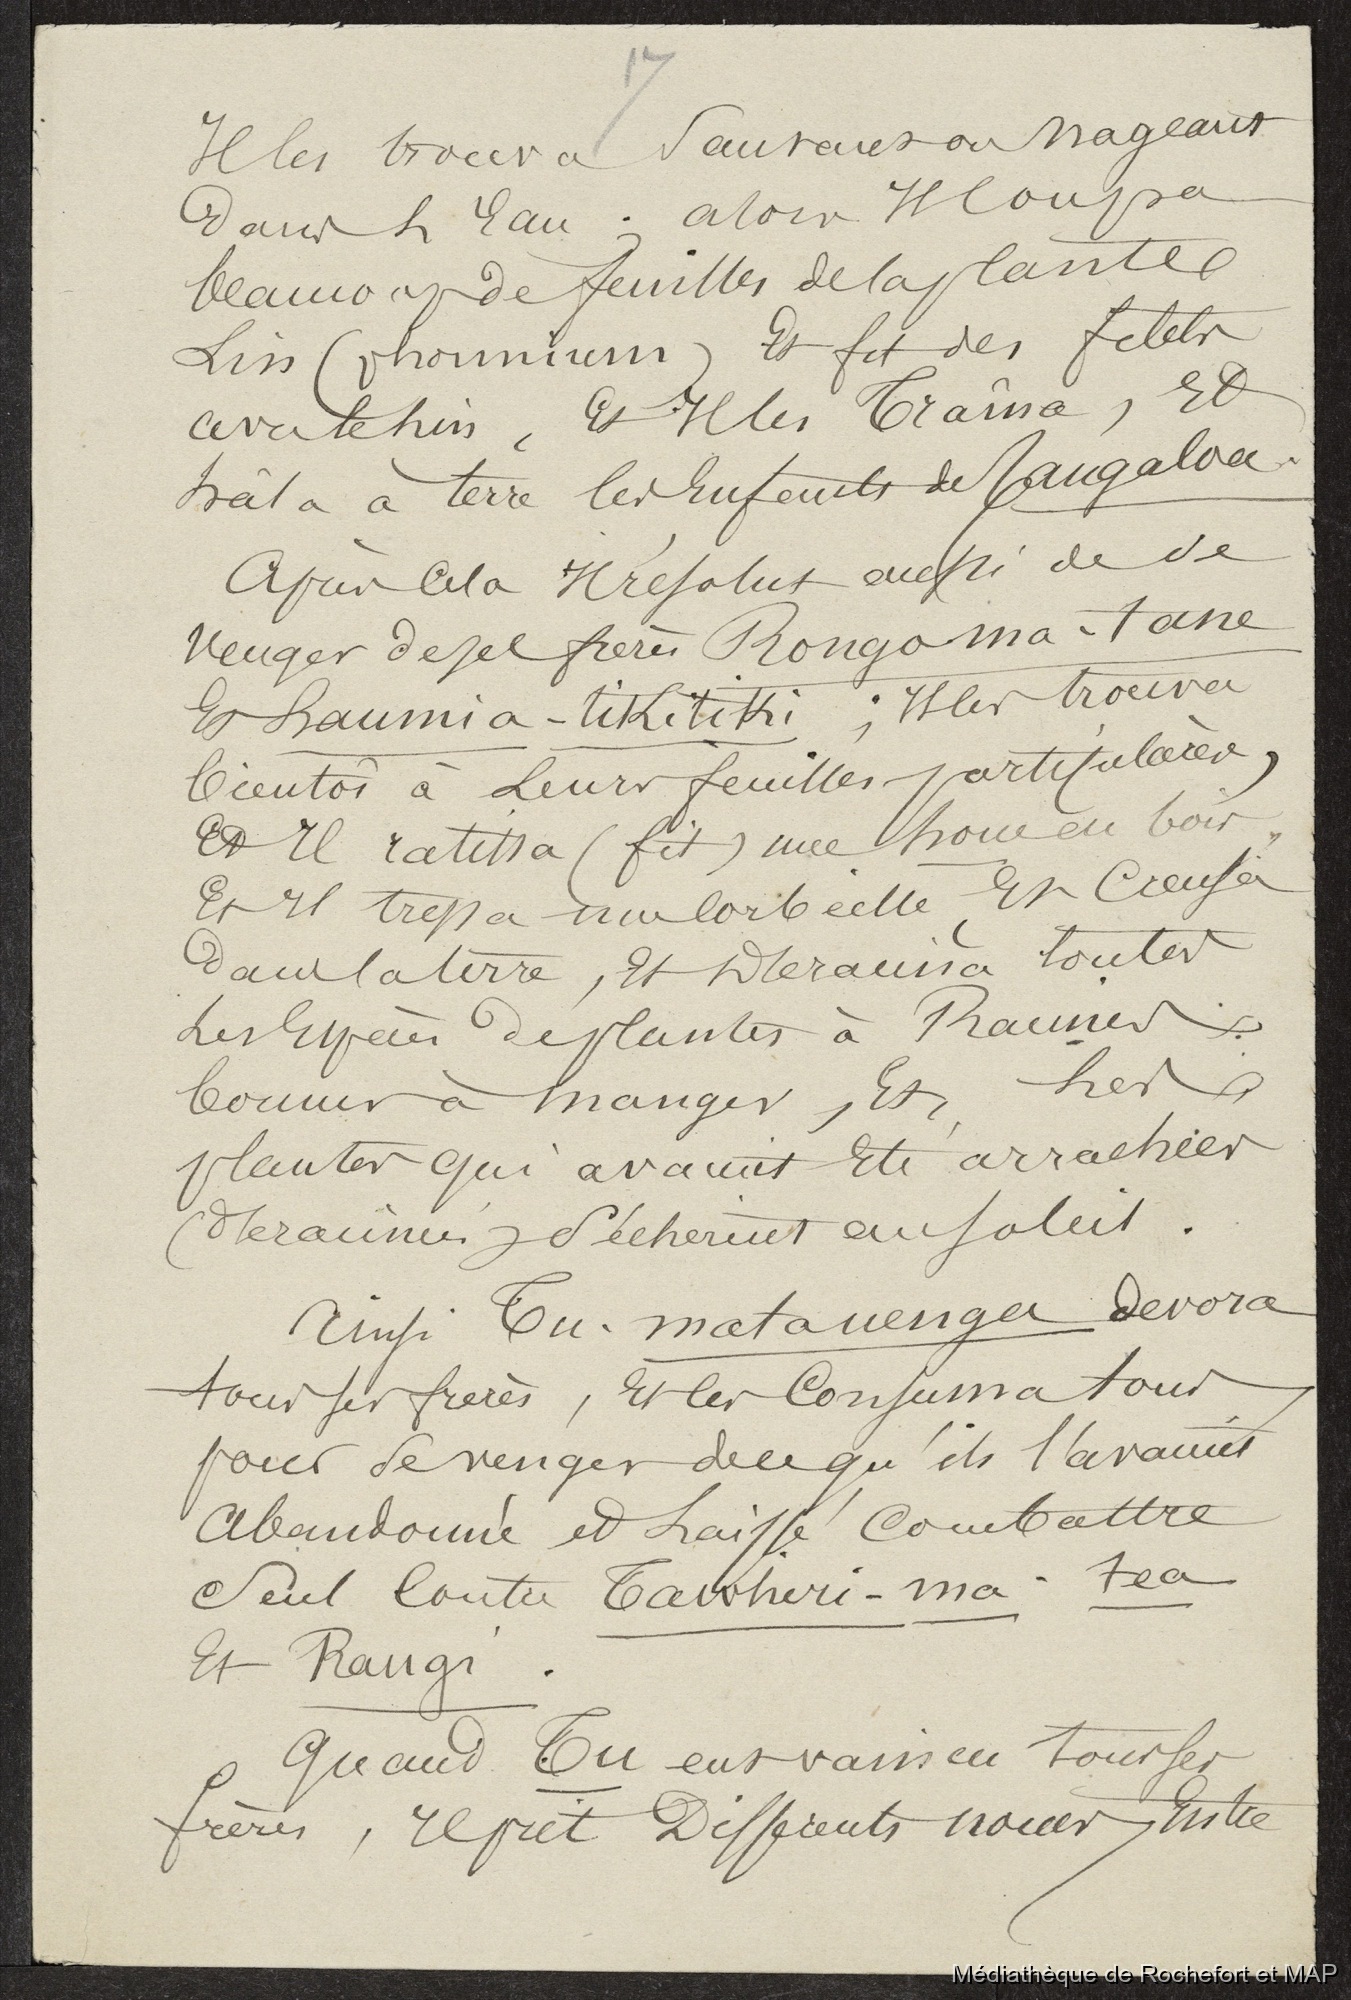 17
Il les trouva Sautant ou Nageant
Dans L'Eau ; alors Il Coupa
beaucoup de feuilles de la plante
Lin (phormium) Et fit des filets
avec le lin, Et Il les Traîna, Et
hâla à terre les Enfants de Tangaloa.
Après Cela Il résolut aussi de se
Venger de ses frères Rongo ma-tane
Et haumia-tikitiki ; Il les trouva
bientôt à Leurs feuilles particulières,
Et Il ratissa (fit) une houe en bois,
Et Il tressa une Corbeille, Et Creusa
Dans la terre, Et Déracina toutes
Les Espèces de plantes à Racines
bonnes à manger, Et, Les
plantes qui avaient Eté arrachées
(déracinées) Séchèrent au soleil.
Ainsi Tu-matauenga devora
tous ses frères, Et les Consuma tous
pour Se venger de ce qu'ils l'avaient
Abandonné et Laissé Combattre
Seul Contre Tawhiri-ma-tea
Et Rangi.
Quand Tu eut vaincu tous ses
frères, Il prit Différents noms, Entre
Médiathèque de Rochefort et MAP